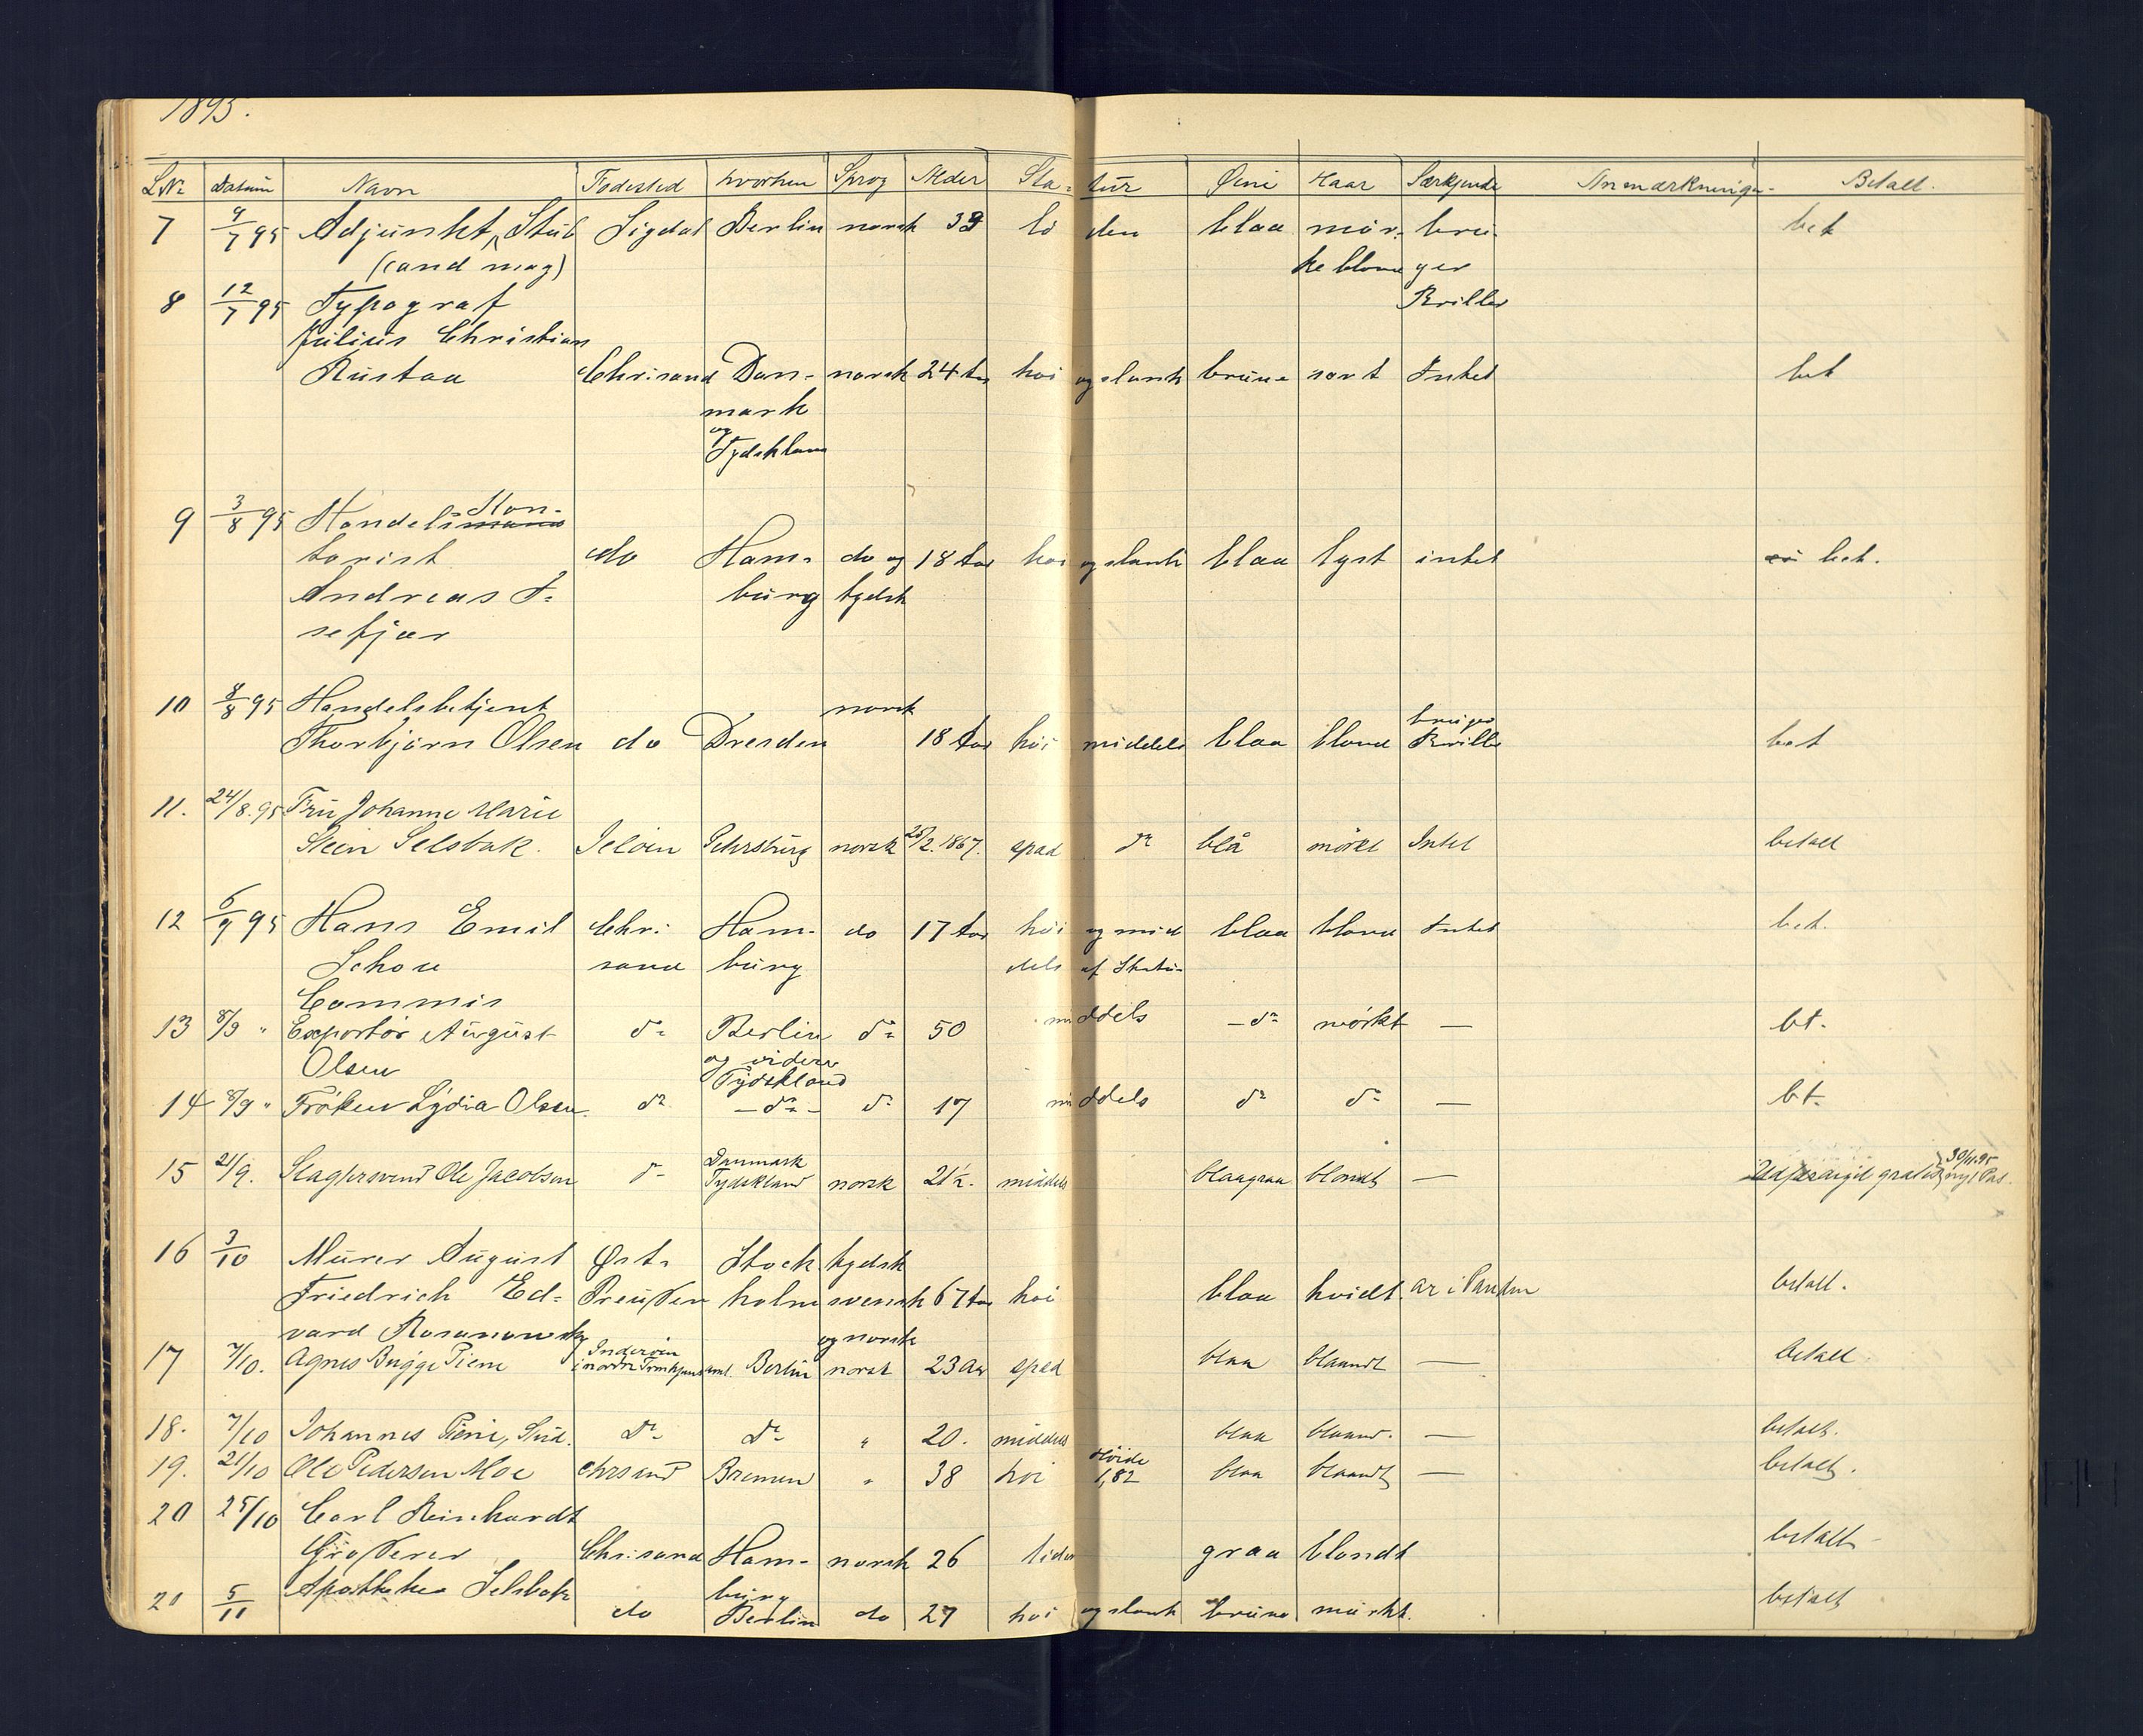 1895.
LNo Datum Navn Fødested hvorhen Sprog Alder Sta- tur Øine Haar Særkjende Anmærkninger Betalt.
7 9/7 95 Adjunkt, Stub Sigdal Berlin norsk 39 li den blaa mør- bru- bet
(cand mag) ke blond ger
8 12/7 95 Typograf Briller
Julius Christian
Rustaa Chrisand Dan- norsk 24 aar høi og slank brune sort Intet bet
mark
og
Tydskland
9 3/8 95 Handelsmand Kon-
torist do Ham- do og 18 aar høi og slank blaa lyst intet bet.
Andreas I- burg tydsk
sefjær
10 8/8 95 Handelsbetjent norsk bruger
Thorbjørn Olsen do Dresden 18 aar høi middels blaa blond Briller bet
11. 24/8.95 Fru Johanne Marie
Stein Selsbak. Jeløen Petersburg norsk 25/2.1867. spæd do blå mørkt Intet betalt
12 6/9 95 Hans Emil Chri- Ham- do 17 aar høi og mid blaa blond Intet bet.
Schou sand burg dels af Statu-
Commis
13 8/9 " Exportør August do Berlin do 50 middels - do mørkt — bt.
Olsen og videre
Tydskland
14 8/9 " Frøken Lydia Olsen. do - do - do 17 middels do do — bt.
15 21/9. Slagtersvend Ole Jacobsen do Danmark Tydskland norsk 21 1/2. middels blaagraa blondt — gratis nyt Pas. 30/11.95
16 3/10 Murer August Øst- Stock tydsk
Friedrich Ed- Preussen holm svensk 67 aar høi blaa hvidt ar i Panden betalt.
vard Rosanowsky og norsk
17 7/10. Agnes Bugge Piene Inderøen i nordre Trondhjems amt. Berlin norsk 23 aar spæd blaa blaandt — betalt
18. 7/10 Johannes Piene, Stud. do do " 20. middels blaa blaand. — betalt.
19. 21/10 Ole Pedersen Moe Chrsand Bremen " 38 høi Høide 1,82 blaa blaandt — betalt.
20 25/10 Carl Reinhardt
Grosserer Chrisand Ham- norsk 26 liden graa blondt betalt
burg
21 5/11 Apotheker Selsbak do Berlin do 27 høi og slank brune mørkt. betalt